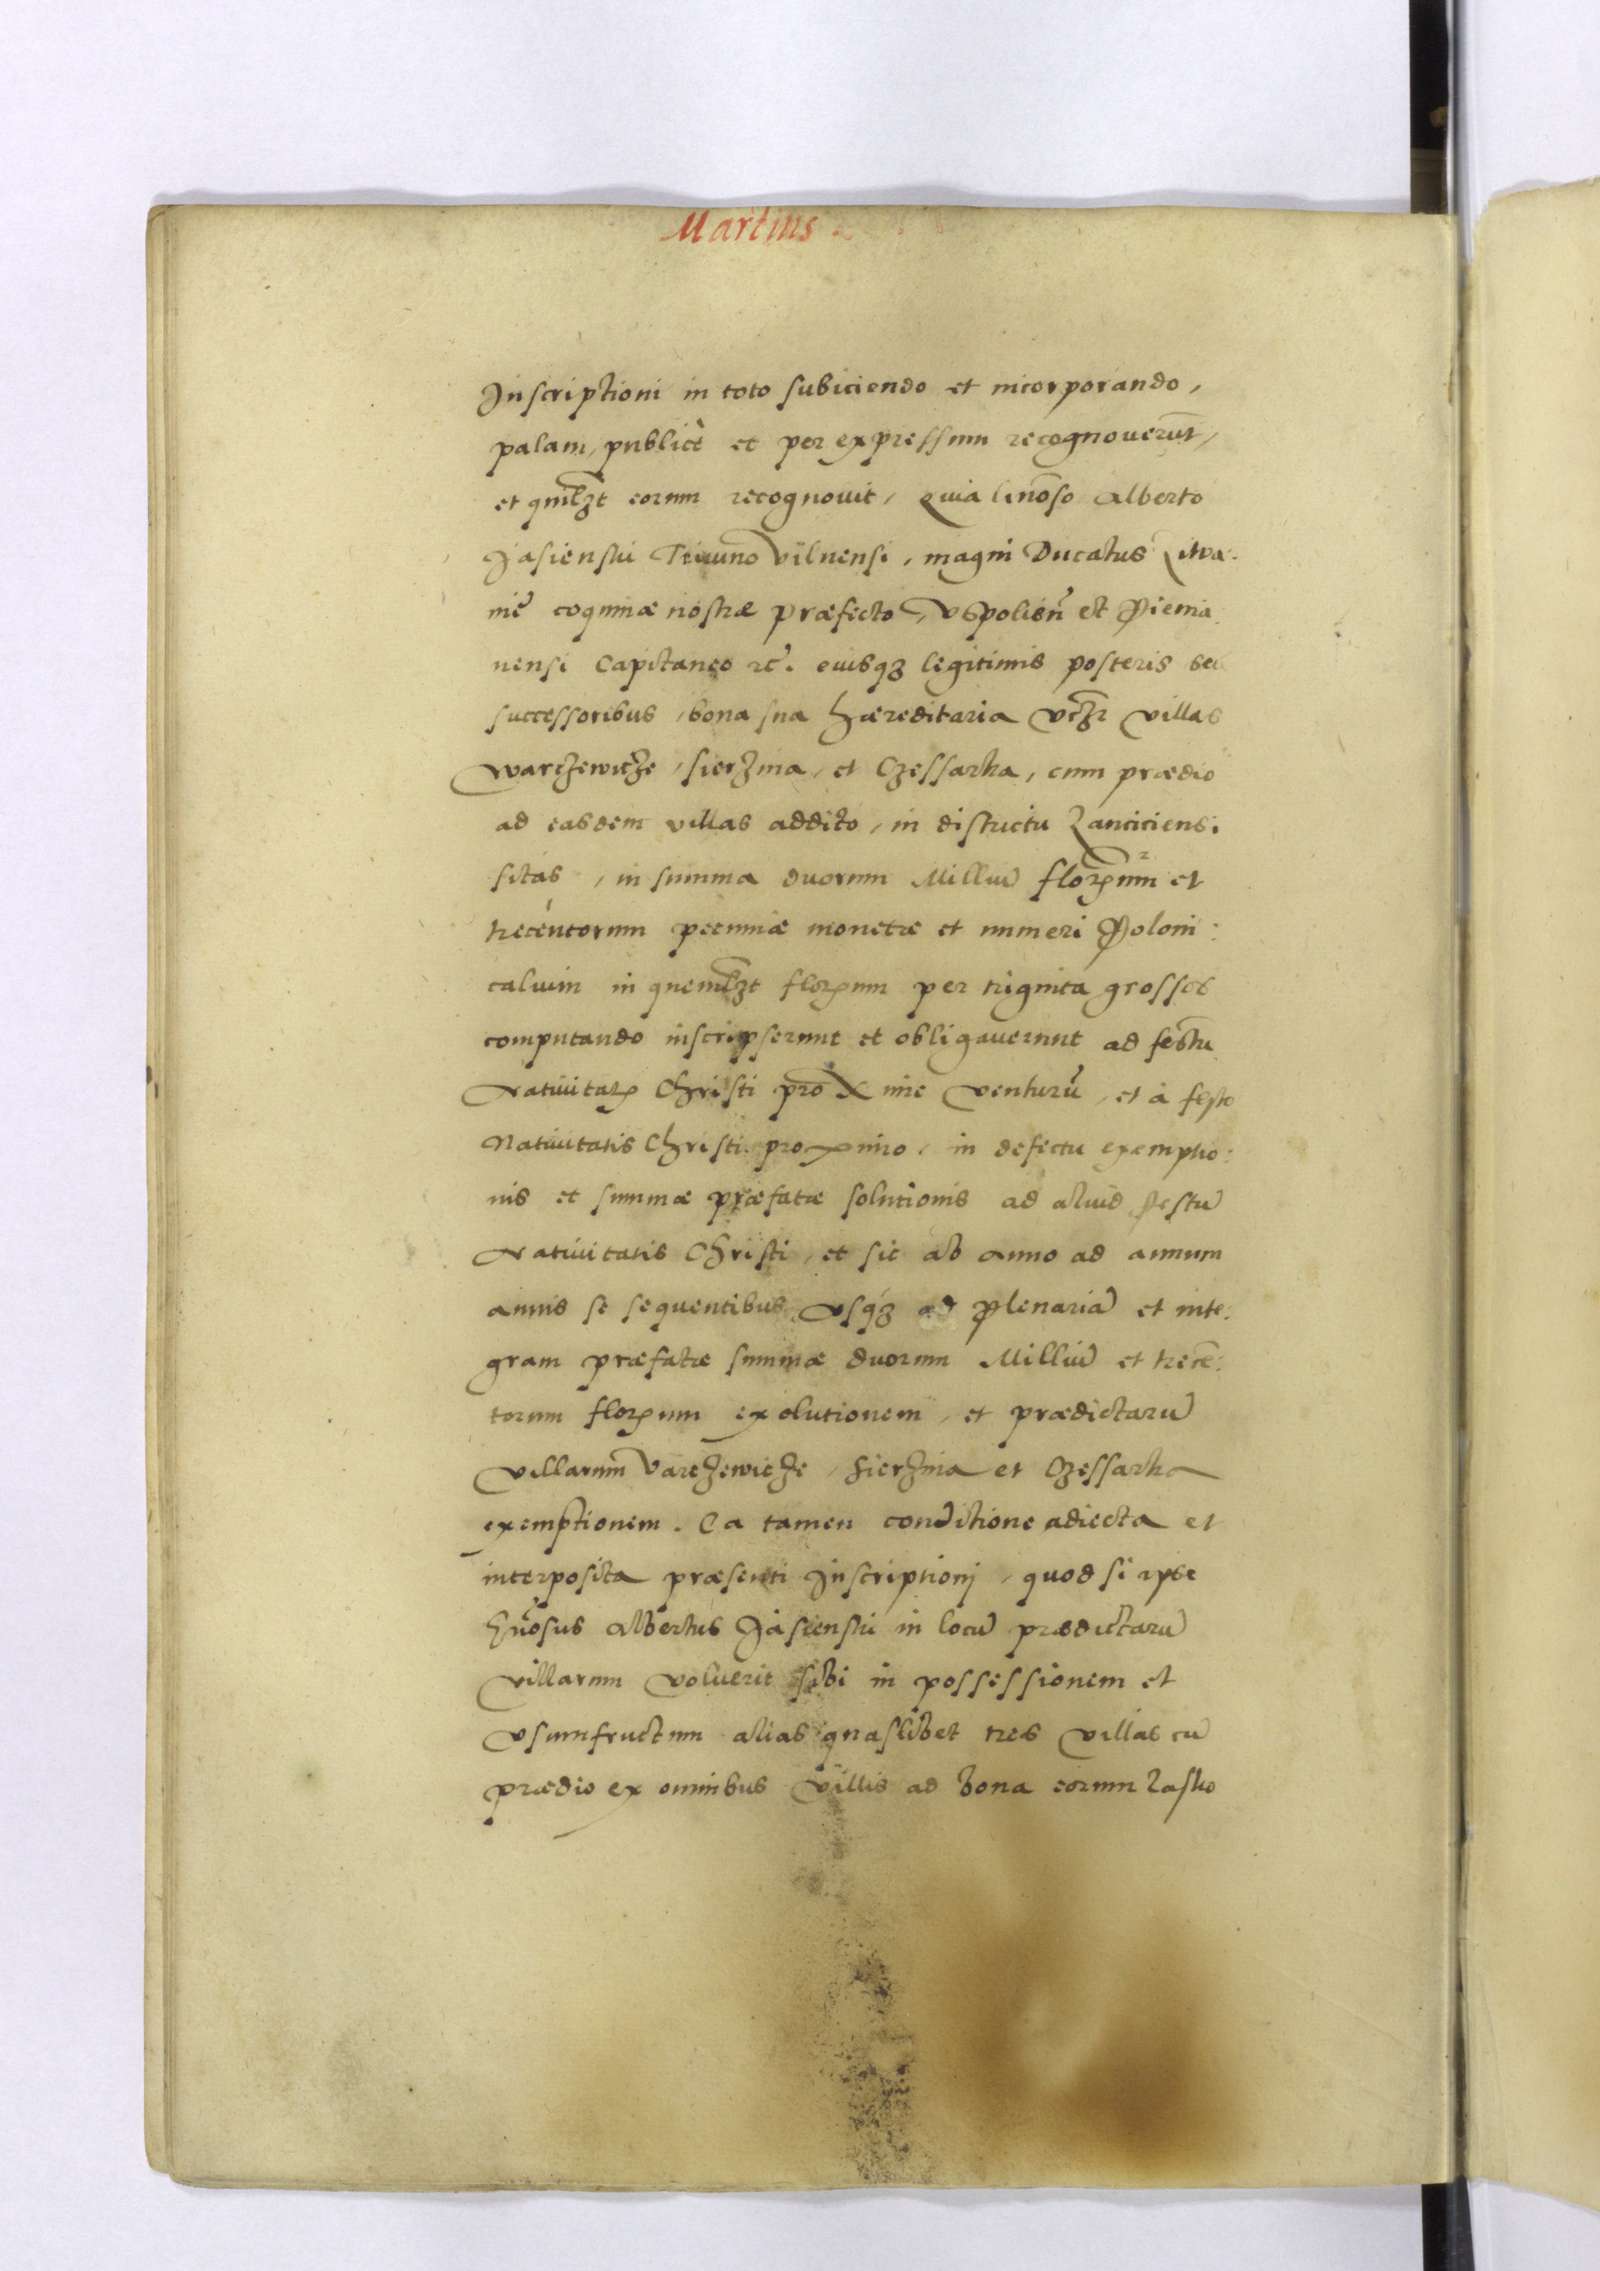 Martius
Inscriptioni in toto subiciendo et incorporando,
palam, publicè et per expressum recognouerūt,
et quilbʒt eorum recognouit, Quia Gnōso Alberto
Jasienski Tiwuno Vilnensi, magni Ducatus Litua:
niē coquinæ nostræ præfecto, Uspolieñ et Pienia
nensi Capitaneo ꝛc̃. euisqʒ legitimis posteris seu
successoribus, bona sua hæreditaria vʒ villas
Warczewicze, Sierzina, et Czessarka, cum prædio
ad easdem villas addito, in districtu Lanciciensi
sitas, in summa duorum Milliū florenum et
trecentorum pecuniæ monetæ et numeri Poloni:
calium in quemlbʒt florenum per triginta grossos
computando inscripserunt et obligauerunt ad festū
Natiuitatis Christi proxime venturū, et à festo
Natiuitatis Christi proximo, in defectu exemptio:
nis et summæ præfatæ solutionis ad aliud Festū
Natiuitatis Christi, et sic ab anno ad annum
annis se sequentibus, vsqʒ ad plenariā et inte:
gram præfatæ summæ duorum Milliū et trecē:
torum florenum exolutionem, et prædictarū
villarum Varczewicze, Sierzina et Czessarka
exemptionem. Ea tamen conditione adiecta et
interposita præsenti Inscriptioni, quod si ipse
Gnōsus Albertus Jasienski in locū prædictarū
villarum voluerit sibi in possessionem et
vsumfructum alias quaslibet tres villas cū
prædio ex omnibus villis ad bona eorum Lasko